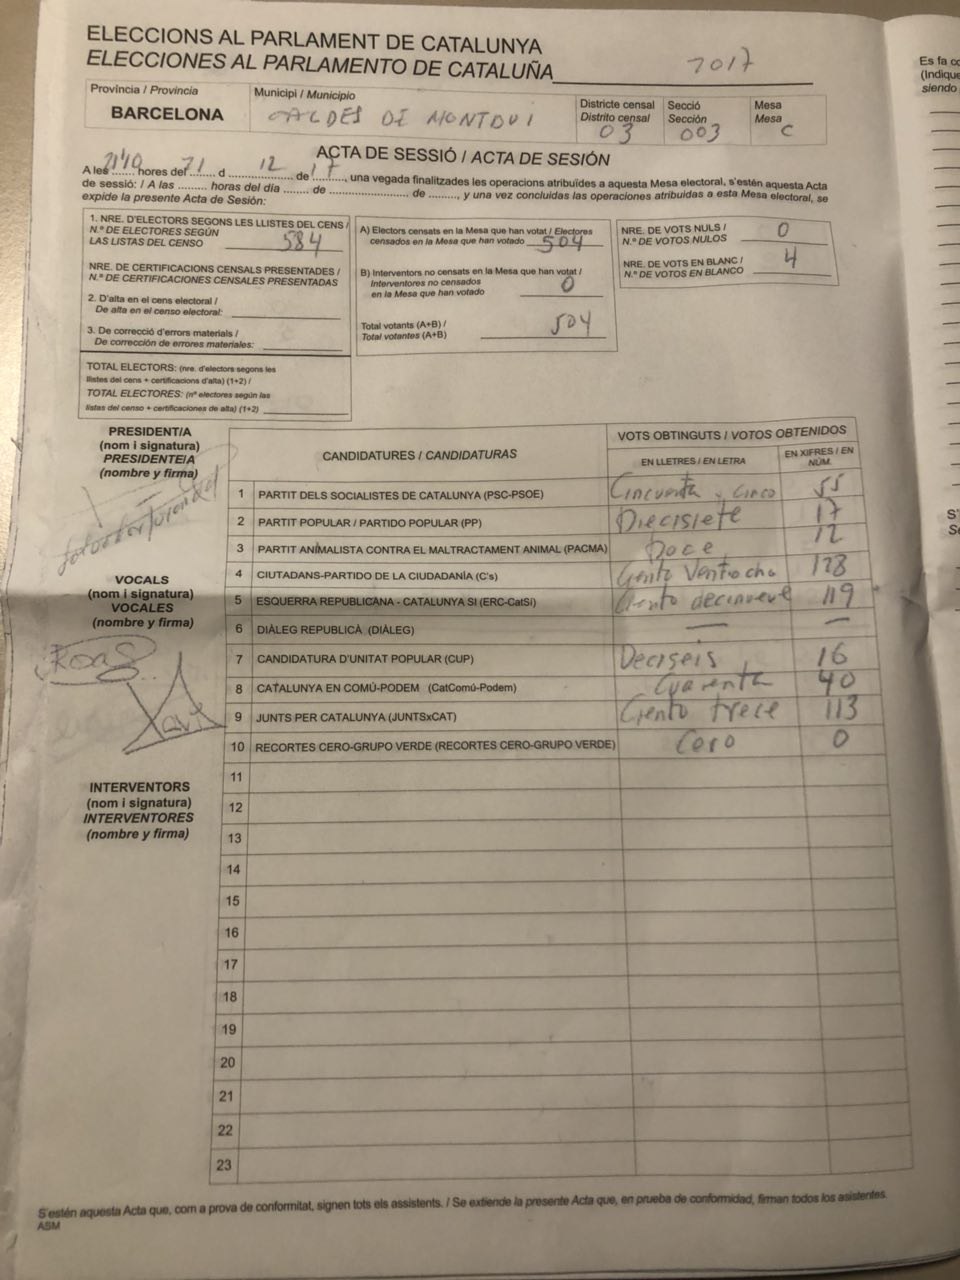 ELECCIONS AL PARLAMENT DE CATALUNYA
ELECCIONES AL PARLAMENTO DE CATALUÑA 2017
Província / Provincia
BARCELONA
Municipi / Municipio
CALDES DE MONTBUI
Districte censal
Distrito censal
03
Secció
Sección
003
Mesa
Mesa
C
ACTA DE SESSIÓ / ACTA DE SESIÓN
A les 2140 hores del 21 d 12 de 17, una vegada finalitzades les operacions atribuïdes a aquesta Mesa electoral, s'estén aquesta Acta
de sessió: / A las ......... horas del día ........ de ........................ de ........, y una vez concluidas las operaciones atribuidas a esta Mesa electoral, se
expide la presente Acta de Sesión:
1. NRE. D'ELECTORS SEGONS LES LLISTES DEL CENS /
N.º DE ELECTORES SEGÚN
LAS LISTAS DEL CENSO 584
NRE. DE CERTIFICACIONS CENSALS PRESENTADES /
N.º DE CERTIFICACIONES CENSALES PRESENTADAS
2. D'alta en el cens electoral /
De alta en el censo electoral:
3. De correcció d'errors materials /
De corrección de errores materiales:
TOTAL ELECTORS: (nre. d'electors segons les
llistes del cens + certificacions d'alta) (1+2) /
TOTAL ELECTORES: (nº electores según las
listas del censo + certificaciones de alta) (1+2)
A) Electors censats en la Mesa que han votat / Electores
censados en la Mesa que han votado 504
B) Interventors no censats en la Mesa que han votat /
Interventores no censados
en la Mesa que han votado 0
Total votants (A+B) /
Total votantes (A+B) 504
NRE. DE VOTS NULS /
N.º DE VOTOS NULOS 0
NRE. DE VOTS EN BLANC /
N.º DE VOTOS EN BLANCO 4
PRESIDENT/A
(nom i signatura)
PRESIDENTE/A
(nombre y firma)
VOCALS
(nom i signatura)
VOCALES
(nombre y firma)
Roas
Xavi
INTERVENTORS
(nom i signatura)
INTERVENTORES
(nombre y firma)
CANDIDATURES / CANDIDATURAS
VOTS OBTINGUTS / VOTOS OBTENIDOS
EN LLETRES / EN LETRA
EN XIFRES / EN
NÚM.
1 PARTIT DELS SOCIALISTES DE CATALUNYA (PSC-PSOE) Cincuenta y cinco 55
2 PARTIT POPULAR / PARTIDO POPULAR (PP) Diecisiete 17
3 PARTIT ANIMALISTA CONTRA EL MALTRACTAMENT ANIMAL (PACMA) Doce 12
4 CIUTADANS-PARTIDO DE LA CIUDADANÍA (C's) Ciento Ventiocho 128
5 ESQUERRA REPUBLICANA - CATALUNYA SÍ (ERC-CatSí) Ciento decinueve 119
6 DIÀLEG REPUBLICÀ (DIÀLEG) — —
7 CANDIDATURA D'UNITAT POPULAR (CUP) Deciseis 16
8 CATALUNYA EN COMÚ-PODEM (CatComú-Podem) Cuarenta 40
9 JUNTS PER CATALUNYA (JUNTSxCAT) Ciento trece 113
10 RECORTES CERO-GRUPO VERDE (RECORTES CERO-GRUPO VERDE) Cero 0
11
12
13
14
15
16
17
18
19
20
21
22
23
S'estén aquesta Acta que, com a prova de conformitat, signen tots els assistents. / Se extiende la presente Acta que, en prueba de conformidad, firman todos los asistentes.
ASM
Es fa co
(Indique
siendo
S'
Se